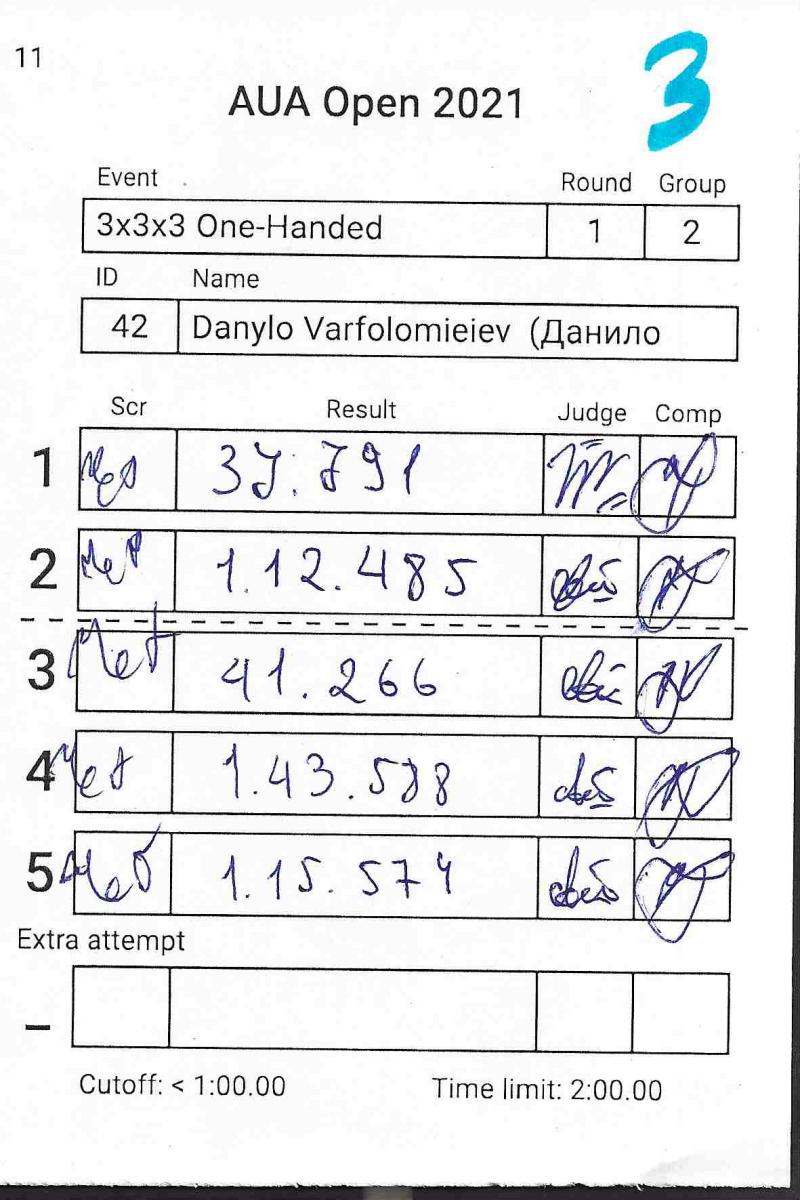 11
3
AUA Open 2021
Event Round Group
3x3x3 One-Handed 1 2
ID Name
42 Danylo Varfolomieiev (Данило
Scr Result Judge Comp
1 37.791
2 1.12.485
3 41.266
4 1.43.588
5 1.15.574
Extra attempt
_
Cutoff: < 1:00.00 Time limit: 2:00.00